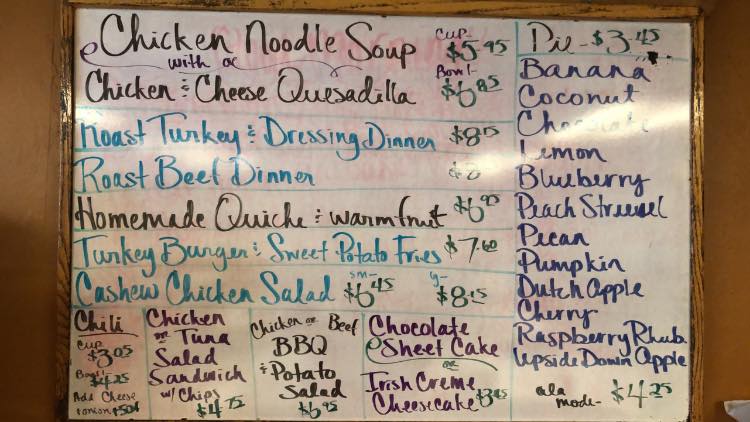 Chicken Noodle Soup Cup- $5.95
with or Bowl-
Chicken & Cheese Quesadilla $6.85
Roast Turkey & Dressing Dinner
Roast Beef Dinner
Homemade Quiche & warm fruit $6.95
Turkey Burger & Sweet Potato Fries $7.60
Cashew Chicken Salad sm- $6.45 $8.15
Chili
Cup
$3.05
Bowl
$4.25
Add Cheese
& onion
Chicken
or Tuna
Salad
Sandwich
w/ Chips
$4.75
Chicken or Beef
BBQ
& Potato
Salad
$6.95
Chocolate
Sheet Cake
or
Irish Creme
Cheesecake
Pie - $3.45
Banana
Coconut
Chocolate
Lemon
Blueberry
Peach Streusel
Pecan
Pumpkin
Dutch Apple
Cherry
Raspberry Rhub.
Upside Down Apple
ala
mode- $4.25